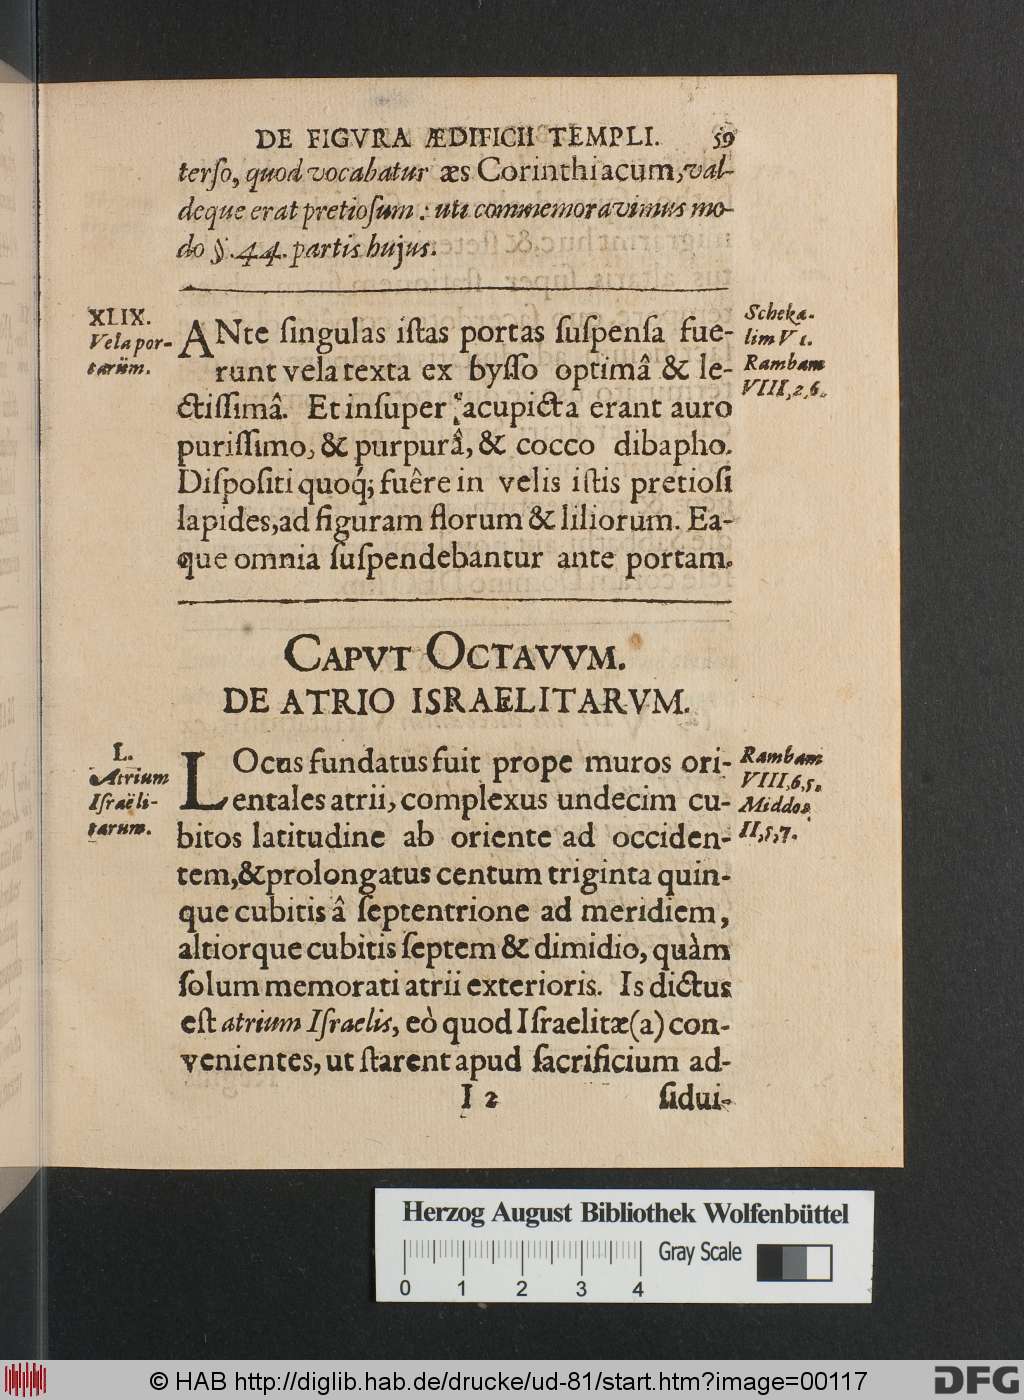 DE FIGVRA ÆDIFICII TEMPLI. 59
terſo, quod vocabatur æs Corinthiacum, val-
deque erat pretioſum: uti commemoravimus mo-
do §. 44. partis hujus.
XLIX.
Vela por-
tarüm.
ANte ſingulas iſtas portas ſuſpenſa fue-
runt vela texta ex byſſo optimâ & le-
ctiſſimâ. Et inſuper acupicta erant auro
puriſſimo, & purpurâ, & cocco dibapho.
Diſpoſiti quoq́; fuêre in velis iſtis pretioſi
lapides, ad figuram florum & liliorum. Ea-
que omnia ſuſpendebantur ante portam.
Scheka-
lim V 1.
Rambam
VIII, 2, 6.
CAPVT OCTAVVM.
DE ATRIO ISRAELITARVM.
L.
Atrium
Iſraëli-
tarum.
LOcus fundatus fuit prope muros ori-
entales atrii, complexus undecim cu-
bitos latitudine ab oriente ad occiden-
tem, & prolongatus centum triginta quin-
que cubitis â ſeptentrione ad meridiem,
altiorque cubitis ſeptem & dimidio, quàm
ſolum memorati atrii exterioris. Is dictus
eſt atrium Iſraelis, eò quod Iſraelitæ (a) con-
venientes, ut ſtarent apud ſacrificium ad-
Rambam
VIII, 6, 5.
Middos
II, 5, 7.
I 2 ſidui-
Herzog August Bibliothek Wolfenbüttel
Gray Scale
0 1 2 3 4
© HAB http://diglib.hab.de/drucke/ud-81/start.htm?image=00117
DFG